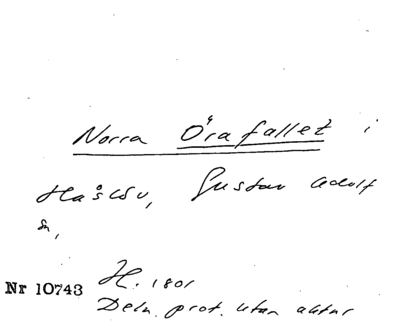 Norra Örafallet i
Håslöv, Gustav Adolf
sn,
Nr 10743 H. 1801
Deln. prot. utan aktnr